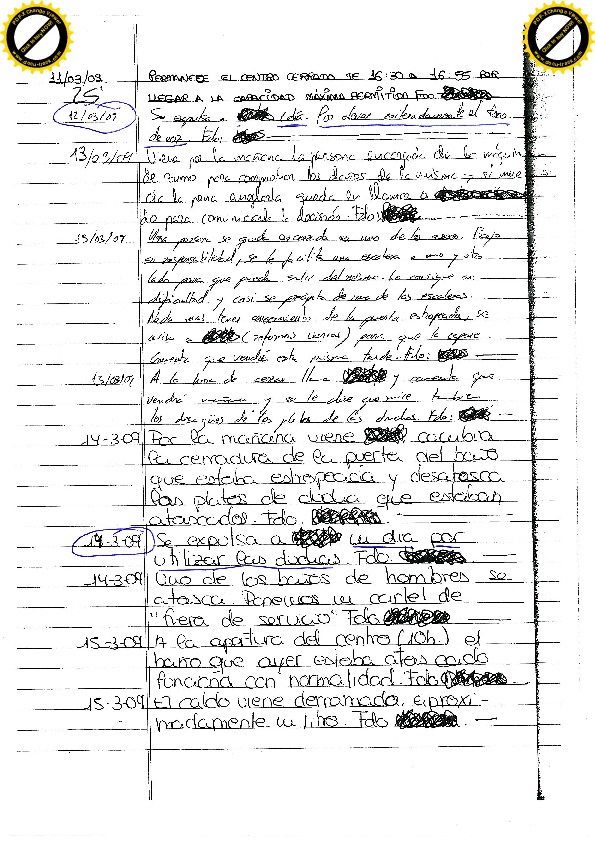 11/03/09 PERMANECE EL CENTRO CERRADO DE 16:30 A 16:55 POR
LLEGAR A LA CAPACIDAD MÁXIMA PERMITIDA FDO.
25
12/03/09 Se expulsa a 1 día. Por elevar reiteradamente el tono
de voz. Fdo:
13/03/09 Viene por la mañana la persona encargada de la máquina
de zumo para comprobar los daños de la misma y si
la para
do para comunicarle la decisión. Fdo:
13/03/09 Una persona se queda encerrada en uno de los aseos. Bajo
su responsabilidad, se le facilita una escalera a uno y otro
lado para que pueda salir del mismo. Lo consigue con
dificultad y casi se precipita de una de las escaleras.
Nada más tener conocimiento de la puerta estropeada, se
avisa a para que la repare.
Comenta que vendrá esta misma tarde. Fdo:
13/03/09 A la hora de cerrar llama y comenta que
vendrá mañana y se le dice que mire también
los desagües de los platos de las duchas. Fdo:
14-3-09 Por la mañana viene cambia
la cerradura de la puerta del baño
que estaba estropeada y desatasca
los platos de ducha que estaban
atascados. Fdo.
14-3-09 Se expulsa a un día por
utilizar las duchas. Fdo
14-3-09 Uno de los baños de hombres se
atasca. Ponemos un cartel de
"fuera de servicio" Fdo
15-3-09 A la apertura del centro (10h.) el
baño que ayer estaba atascado
funciona con normalidad. Fdo
15-3-09 El caldo viene derramado, aproxi-
madamente un litro. Fdo